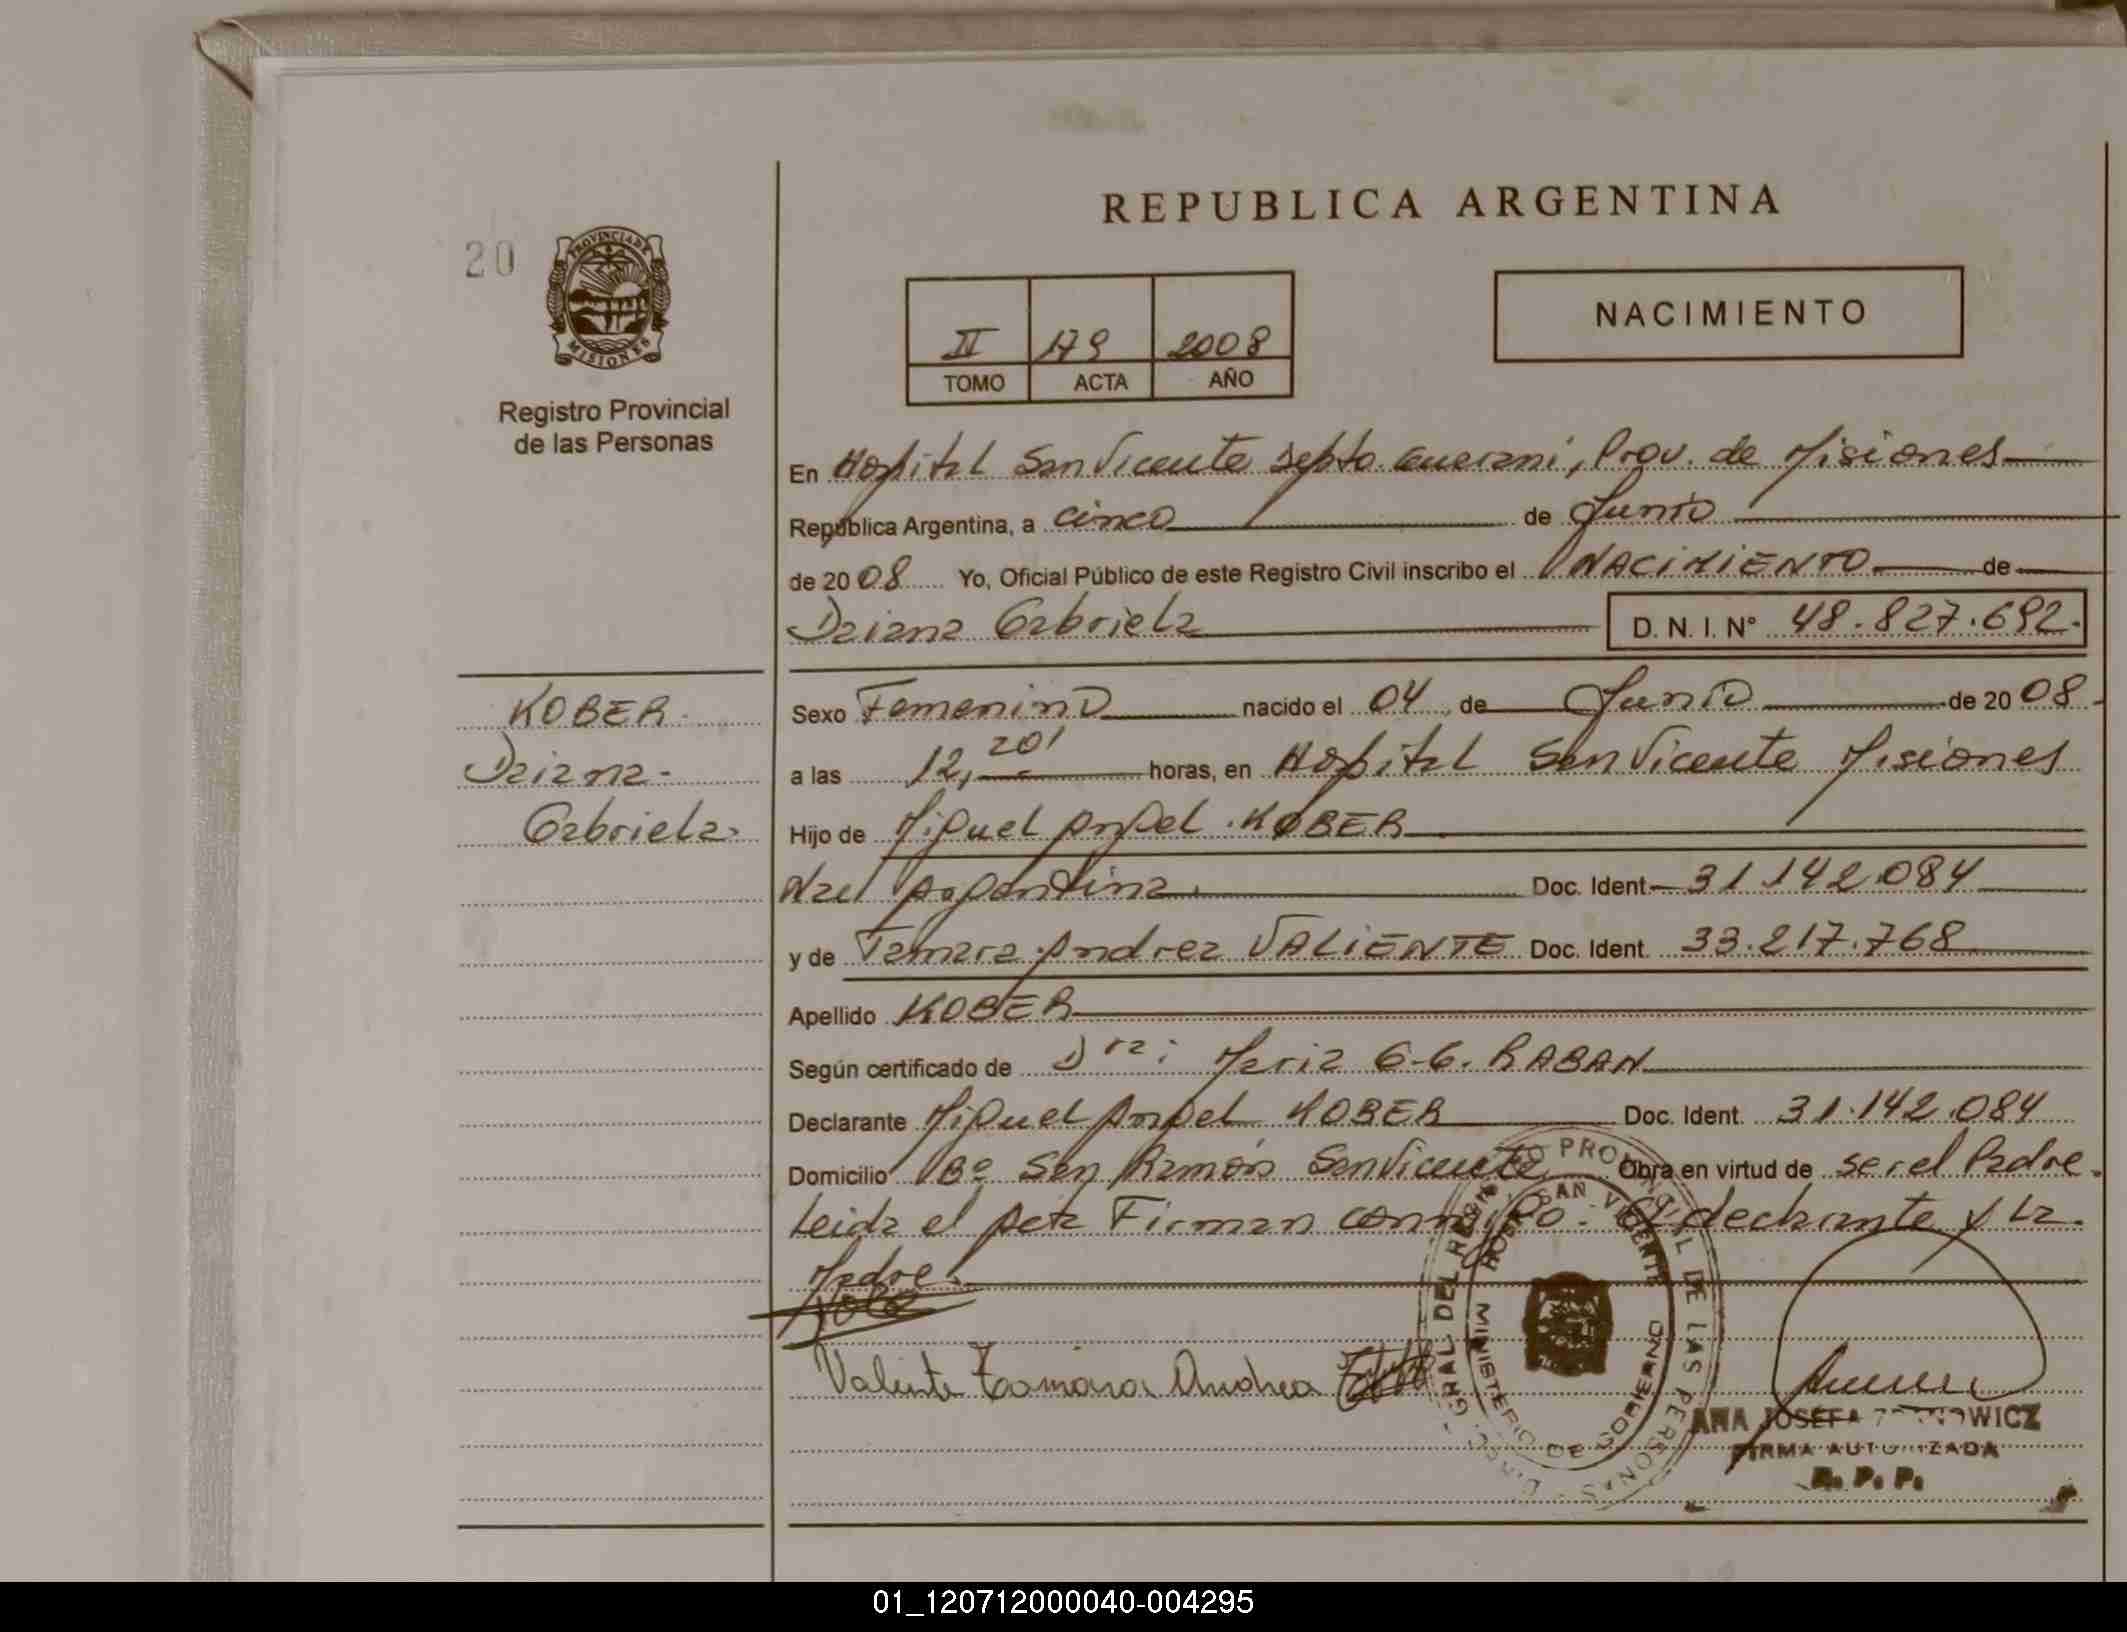 REPUBLICA ARGENTINA
20
PROVINCIA DE
MISIONES
Registro Provincial
de las Personas
II 179 2008
TOMO ACTA AÑO
NACIMIENTO
En Hospital San Vicente Depto. Guarani, Prov. de Misiones
República Argentina, a cinco de Junio
de 2008 Yo, Oficial Público de este Registro Civil inscribo el NACIMIENTO de
Daiana Gabriela D. N. I. N° 48.827.692.
KOBER
Daiana
Gabriela
Sexo Femenino nacido el 04 de Junio de 2008
a las 12,20' horas, en Hospital San Vicente Misiones
Hijo de Miguel Angel KOBER
Nac Argentina. Doc. Ident 31.142.084
y de Tamara Andrea VALIENTE Doc. Ident. 33.217.768
Apellido KOBER
Según certificado de Dra: Maria G. G. RABAN
Declarante Miguel Angel KOBER Doc. Ident. 31.142.084
Domicilio B° San Ramón San Vicente Obra en virtud de ser el Padre.
Leida el Acta Firman conmigo: El declarante y La
Madre.
Valiente Tamara Andrea
DIREC. GRAL. DEL REGISTRO PROVINCIAL DE LAS PERSONAS
HOSP. SAN VICENTE
MINISTERIO DE GOBIERNO
ANA JOSEFA
FIRMA AUTORIZADA
R. P. P.
01_120712000040-004295